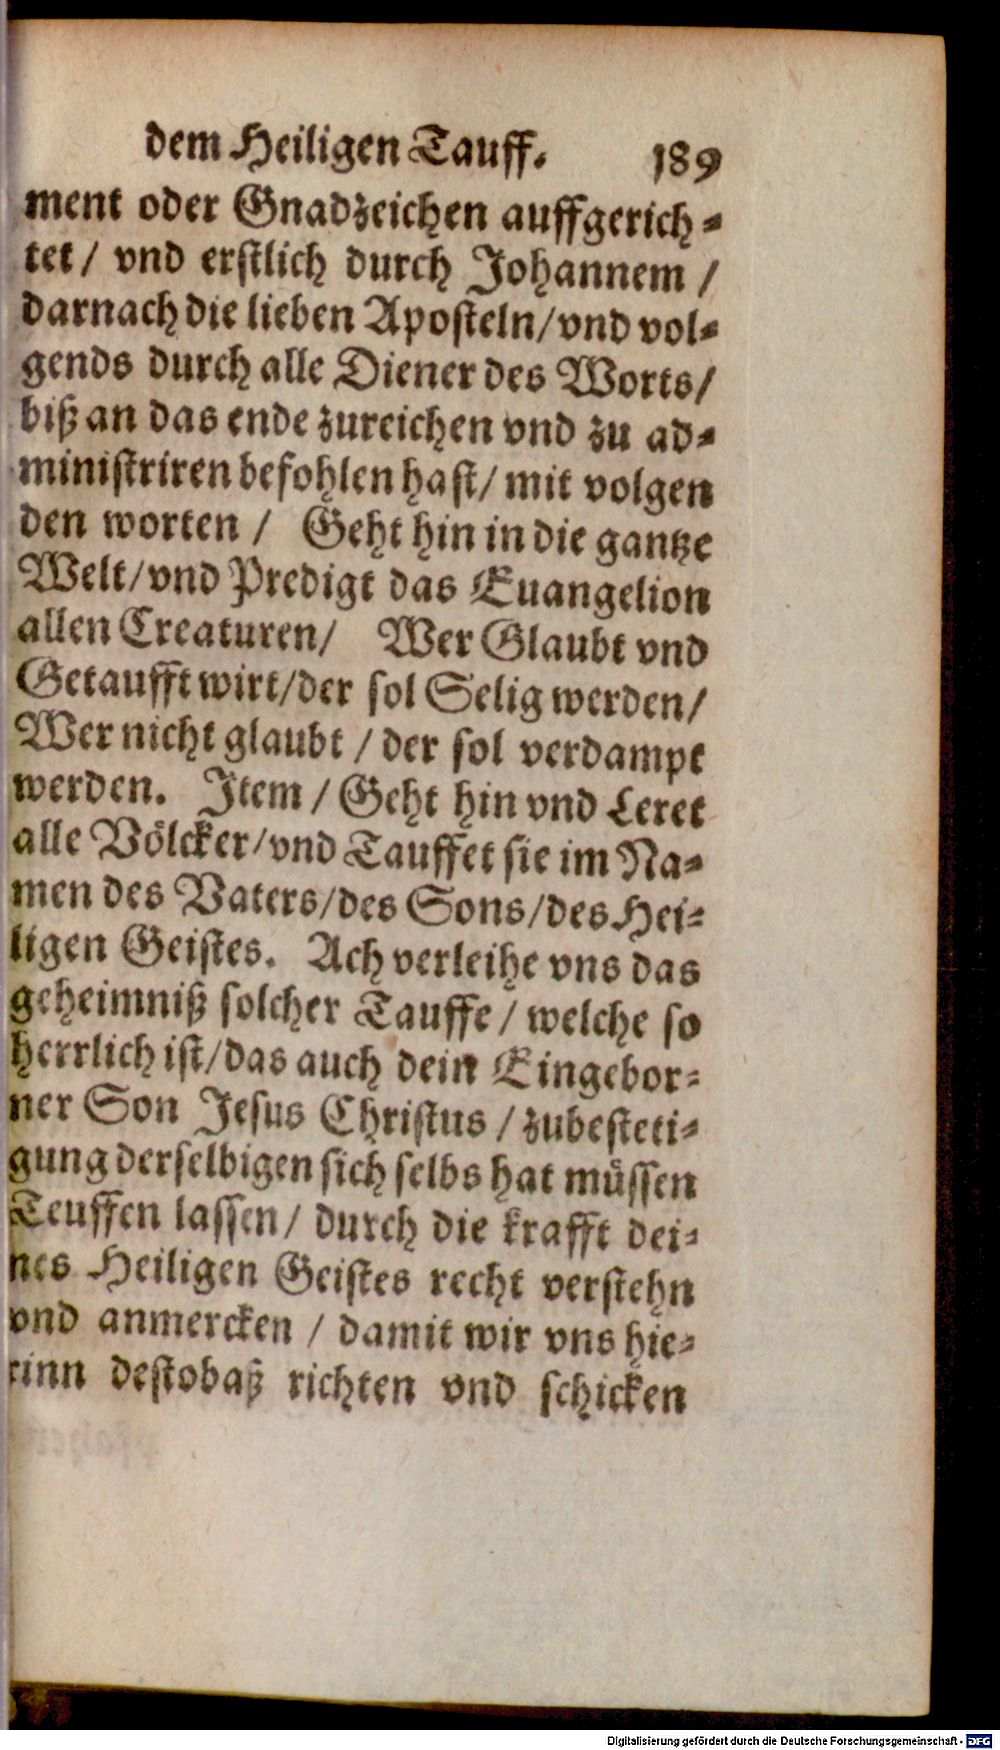 dem Heiligen Tauff. 189
ment oder Gnadzeichen auffgerich-
tet / vnd erstlich durch Johannem /
darnach die lieben Aposteln/vnd vol-
gends durch alle Diener des Worts/
biß an das ende zureichen vnd zu ad-
ministriren befohlen hast/ mit volgen
den worten / Geht hin in die gantze
Welt/vnd Predigt das Euangelion
allen Creaturen/ Wer Glaubt vnd
Getaufft wirt/der sol Selig werden/
Wer nicht glaubt / der sol verdampt
werden. Item / Geht hin vnd Leret
alle Völcker/vnd Tauffet sie im Na-
men des Vaters/des Sons/des Hei-
ligen Geistes. Ach verleihe vns das
geheimniß solcher Tauffe / welche so
herrlich ist/das auch dein Eingebor-
ner Son Jesus Christus / zubesteti-
gung derselbigen sich selbs hat müssen
Teuffen lassen/ durch die krafft dei-
nes Heiligen Geistes recht verstehn
vnd anmercken / damit wir vns hie-
rinn destobaß richten vnd schicken
Digitalisierung gefördert durch die Deutsche Forschungsgemeinschaft - DFG